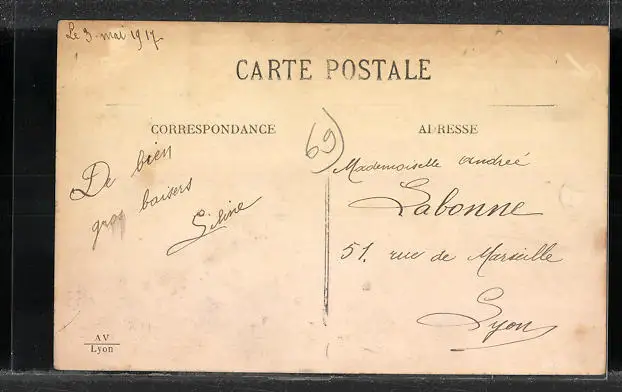 Le 3 mai 1917
CARTE POSTALE
CORRESPONDANCE
ADRESSE
69
De bien
gros baisers
Mademoiselle Andreé
Labonne
51, rue de Marseille
Lyon
AV
Lyon